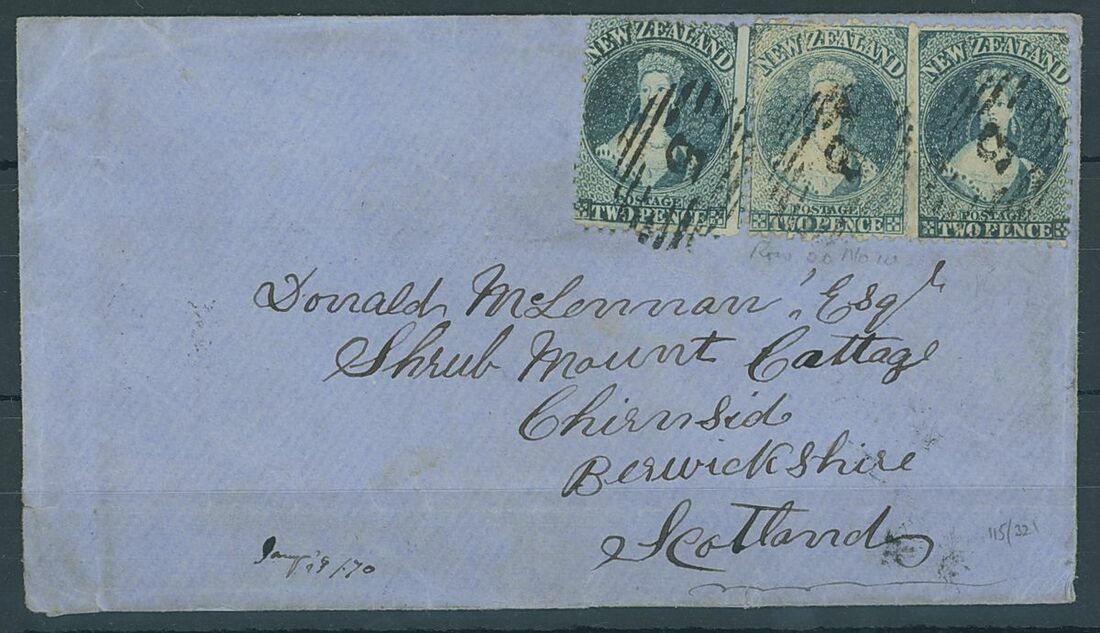 NEW ZEALAND NEW ZEALAND NEW ZEALAND
9 9
POSTAGE POSTAGE POSTAGE
TWO PENCE TWO PENCE TWO PENCE
Row
Donald McLennan, Esqr
Shrub Mount Cottage
Chirnsid
Berwickshire
Scotland
115/321
/70